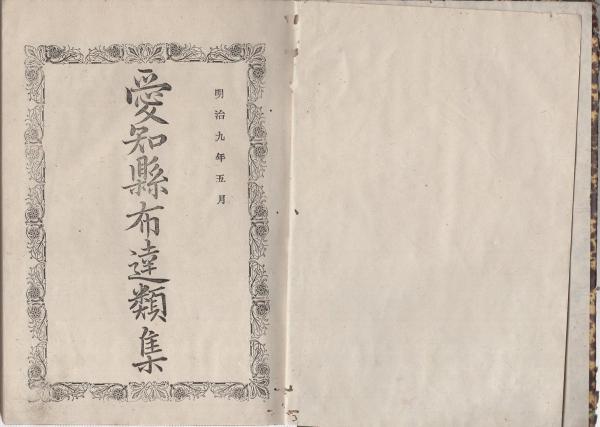 明治九年五月
愛知縣布達類集